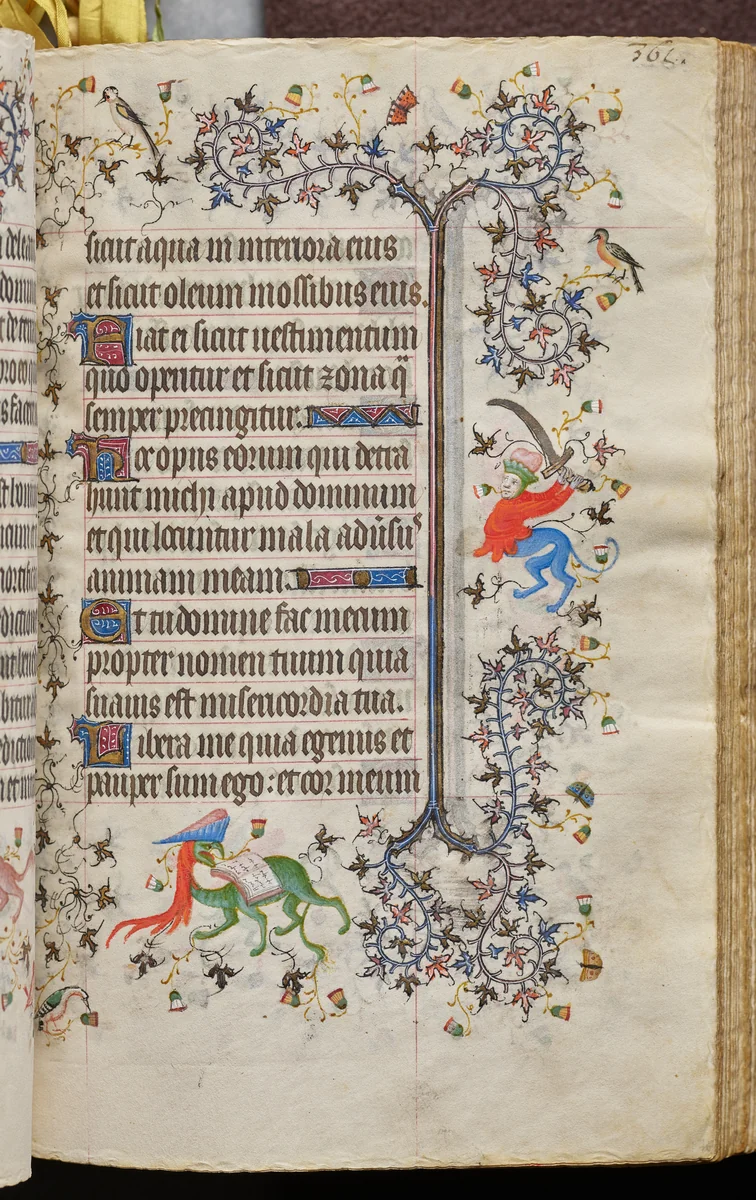 362.
sicut aqua in interiora eius
et sicut oleum in ossibus eius.
Fiat ei sicut uestimentum
quo operitur et sicut zona q̄
semper precingitur.
Hec opus eorum qui detra
hunt michi apud dominum
et qui locuntur mala adūsus
animam meam.
Et tu domine fac mecum
propter nomen tuum quia
suauis est misericordia tua.
Libera me quia egenus et
pauper sum ego: et cor meum